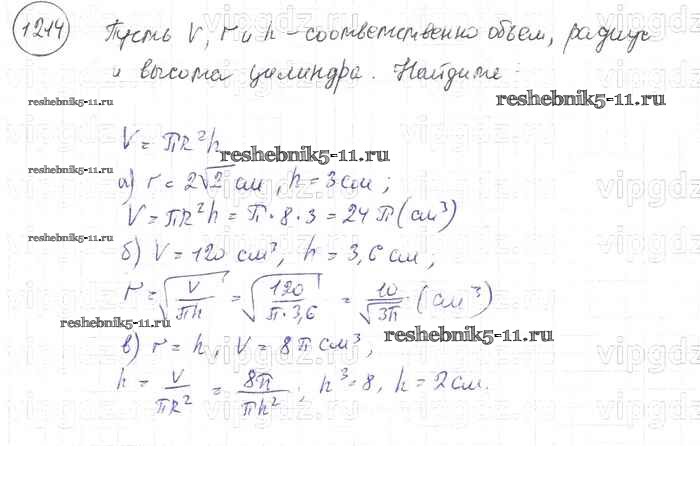 1214 Пусть V, r и h – соответственно объем, радиус
и высота цилиндра. Найдите:
reshebnik5-11.ru
reshebnik5-11.ru
V = πR²h
reshebnik5-11.ru
а) r = 2√2 см, h = 3 см;
V = πR²h = π · 8 · 3 = 24π (см³)
reshebnik5-11.ru
б) V = 120 см³, h = 3,6 см;
r = √(V/πh) = √(120/π·3,6) = 10/√3π (см³)
reshebnik5-11.ru
reshebnik5-11.ru
в) r = h, V = 8π см³,
h = V/πR² = 8π/πh²; h³ = 8, h = 2 см.
vipgdz